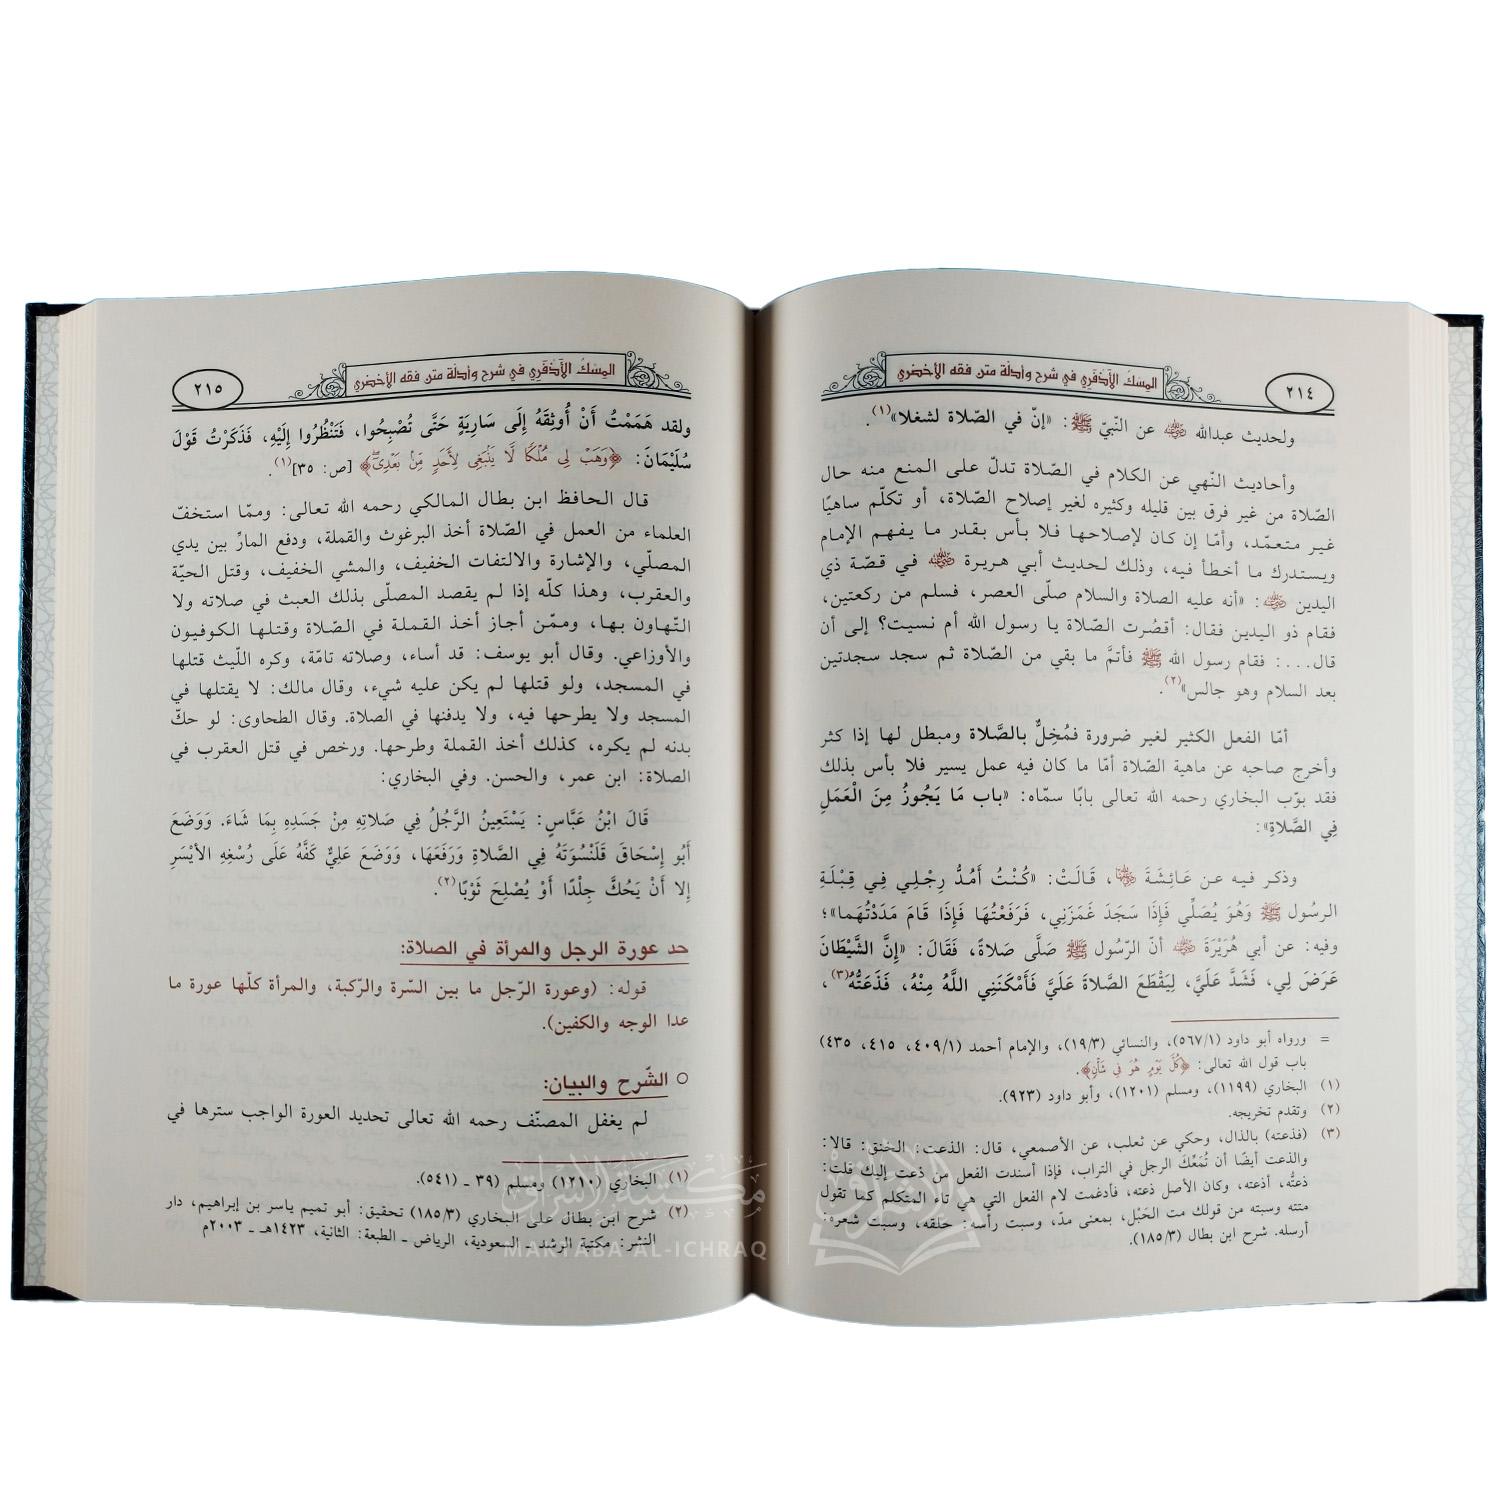 ٢١٤
المسك الأذفري في شرح وأدلة متن فقه الأخضري
ولحديث عبدالله ﵁ عن النّبيّ ﷺ: «إنّ في الصّلاة لشغلا»(١).
وأحاديث النّهي عن الكلام في الصّلاة تدلّ على المنع منه حال
الصّلاة من غير فرق بين قليله وكثيره لغير إصلاح الصّلاة، أو تكلّم ساهيًا
غير متعمّد، وأمّا إن كان لإصلاحها فلا بأس بقدر ما يفهم الإمام
ويستدرك ما أخطأ فيه، وذلك لحديث أبي هريرة ﵁ في قصّة ذي
اليدين ﵁: «أنه عليه الصلاة والسلام صلّى العصر، فسلم من ركعتين،
فقام ذو اليدين فقال: أقصُرت الصّلاة يا رسول الله أم نسيت؟ إلى أن
قال...: فقام رسول الله ﷺ فأتمَّ ما بقي من الصّلاة ثم سجد سجدتين
بعد السلام وهو جالس»(٢).
أمّا الفعل الكثير لغير ضرورة فمُخِلٌّ بالصَّلاة ومبطل لها إذا كثر
وأخرج صاحبه عن ماهية الصّلاة أمّا ما كان فيه عمل يسير فلا بأس بذلك
فقد بوّب البخاري رحمه الله تعالى بابًا سمّاه: «باب مَا يَجُوزُ مِنَ الْعَمَلِ
فِي الصَّلاةِ»:
وذكر فيه عن عَائِشَةَ ﵂، قَالَتْ: «كُنْتُ أَمُدُّ رِجْلِي فِي قِبْلَةِ
الرسُول ﷺ وَهُوَ يُصَلِّي فَإِذَا سَجَدَ غَمَزَنِي، فَرَفَعْتُهَا فَإِذَا قَامَ مَدَدْتُهما»؛
وفيه: عن أبي هُرَيْرَةَ ﵁ أنّ الرّسُول ﷺ صَلَّى صَلاةً، فَقَالَ: «إِنَّ الشَّيْطَانَ
عَرَضَ لِي، فَشَدَّ عَلَيَّ، لِيَقْطَعَ الصَّلاةَ عَلَيَّ فَأَمْكَنَنِي اللَّهُ مِنْهُ، فَذَعَتُّهُ(٣)،
= ورواه أبو داود (٥٦٧/١)، والنسائي (١٩/٣)، والإمام أحمد (٤٠٩/١، ٤١٥، ٤٣٥)
باب قول الله تعالى: ﴿كُلَّ يَوْمٍ هُوَ فِي شَأْنٍ﴾.
(١) البخاري (١١٩٩)، ومسلم (١٢٠١)، وأبو داود (٩٢٣).
(٢) وتقدم تخريجه.
(٣) (فذعته) بالذال، وحكي عن ثعلب، عن الأصمعي، قال: الذعت: الخنق: قالا:
والذعت أيضًا أن تُمَعِّكَ الرجل في التراب، فإذا أسندت الفعل من ذعت إليك قلت:
ذعتُّه، أذعته، وكان الأصل ذعته، فأدغمت لام الفعل التي هي تاء المتكلم كما تقول
متته وسبته من قولك مت الحَبْل، بمعنى مدّ، وسبت رأسه: حلقه، وسبت شعره:
أرسله. شرح ابن بطال (١٨٥/٣).
المسك الأذفري في شرح وأدلة متن فقه الأخضري
٢١٥
ولقد هَمَمْتُ أَنْ أُوثِقَهُ إِلَى سَارِيَةٍ حَتَّى تُصْبِحُوا، فَتَنْظُرُوا إِلَيْهِ، فَذَكَرْتُ قَوْلَ
سُلَيْمَانَ: ﴿وَهَبْ لِي مُلْكًا لَّا يَنْبَغِي لِأَحَدٍ مِّنْ بَعْدِي﴾ [ص: ٣٥](١).
قال الحافظ ابن بطال المالكي رحمه الله تعالى: وممّا استخفّ
العلماء من العمل في الصّلاة أخذ البرغوث والقملة، ودفع المارِّ بين يدي
المصلّي، والإشارة والالتفات الخفيف، والمشي الخفيف، وقتل الحيّة
والعقرب، وهذا كلّه إذا لم يقصد المصلّى بذلك العبث في صلاته ولا
التّهاون بها، وممّن أجاز أخذ القملة في الصّلاة وقتلها الكوفيون
والأوزاعي. وقال أبو يوسف: قد أساء، وصلاته تامّة، وكره اللّيث قتلها
في المسجد، ولو قتلها لم يكن عليه شيء، وقال مالك: لا يقتلها في
المسجد ولا يطرحها فيه، ولا يدفنها في الصلاة. وقال الطحاوى: لو حكّ
بدنه لم يكره، كذلك أخذ القملة وطرحها. ورخص في قتل العقرب في
الصلاة: ابن عمر، والحسن. وفي البخاري:
قَالَ ابْنُ عَبَّاسٍ: يَسْتَعِينُ الرَّجُلُ فِي صَلاتِهِ مِنْ جَسَدِهِ بِمَا شَاءَ. وَوَضَعَ
أَبُو إِسْحَاقَ قَلَنْسُوَتَهُ فِي الصَّلاةِ وَرَفَعَهَا، وَوَضَعَ عَلِيٌّ كَفَّهُ عَلَى رُسْغِهِ الأيْسَرِ
إِلا أَنْ يَحُكَّ جِلْدًا أَوْ يُصْلِحَ ثَوْبًا(٢).
حد عورة الرجل والمرأة في الصلاة:
قوله: (وعورة الرّجل ما بين السّرة والرّكبة، والمرأة كلّها عورة ما
عدا الوجه والكفين).
○ الشّرح والبيان:
لم يغفل المصنّف رحمه الله تعالى تحديد العورة الواجب سترها في
(١) البخاري (١٢١٠) ومسلم (٣٩ ـ (٥٤١).
(٢) شرح ابن بطال على البخاري (١٨٥/٣) تحقيق: أبو تميم ياسر بن إبراهيم، دار
النشر: مكتبة الرشد ـ السعودية، الرياض ـ الطبعة: الثانية، ١٤٢٣هـ ـ ٢٠٠٣م
مكتبة الإشراق
MAKTABA AL-ICHRAQ